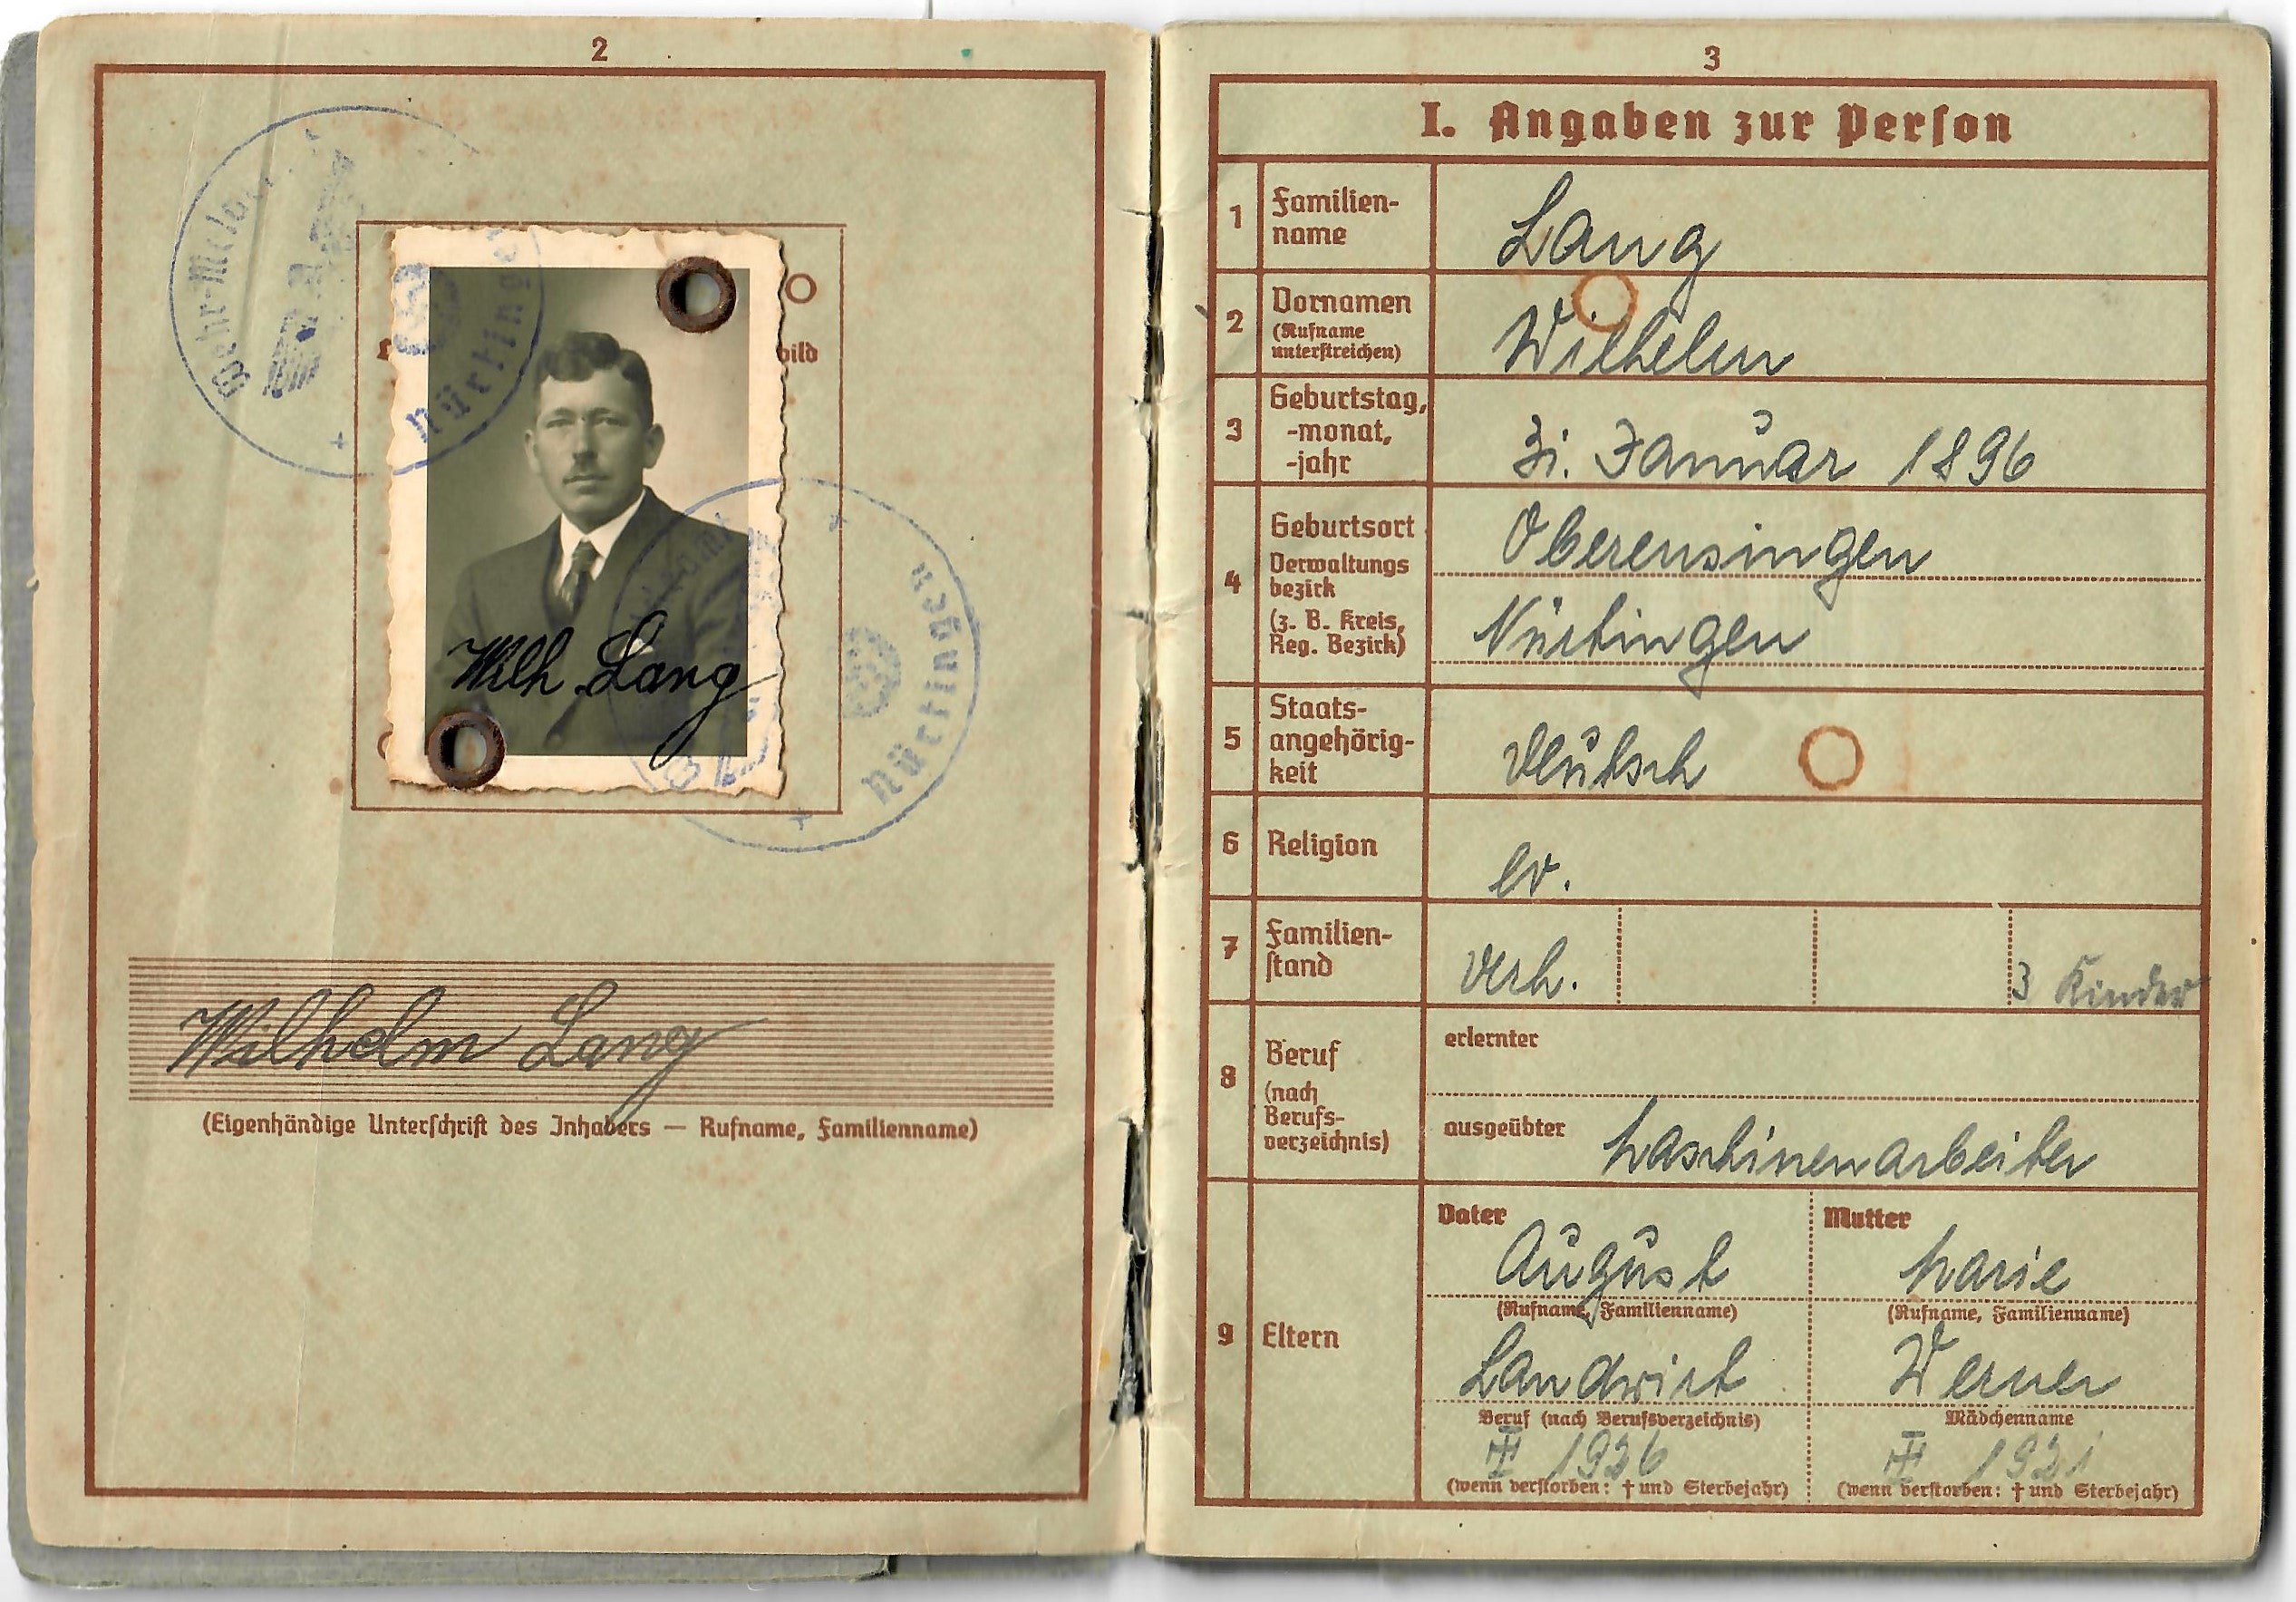 2
Wehr-Meld
Nürtingen
bild
Wilh. Lang
Nürtingen
Wilhelm Lang
(Eigenhändige Unterschrift des Inhabers — Rufname, Familienname)
3
I. Angaben zur Person
1 Familien-
name
Lang
2 Vornamen
(Rufname
unterstreichen)
Wilhelm
3 Geburtstag,
-monat,
-jahr
31. Januar 1896
4 Geburtsort
Verwaltungs
bezirk
(z. B. Kreis,
Reg. Bezirk)
Oberensingen
Nürtingen
5 Staats-
angehörig-
keit
deutsch
6 Religion
ev.
7 Familien-
stand
verh.
3 Kinder
8 Beruf
(nach
Berufs-
verzeichnis)
erlernter
ausgeübter Maschinenarbeiter
9 Eltern
Vater
August
(Rufname, Familienname)
Landwirt
Beruf (nach Berufsverzeichnis)
1926
(wenn verstorben: † und Sterbejahr)
Mutter
Marie
(Rufname, Familienname)
Werner
Mädchenname
1921
(wenn verstorben: † und Sterbejahr)